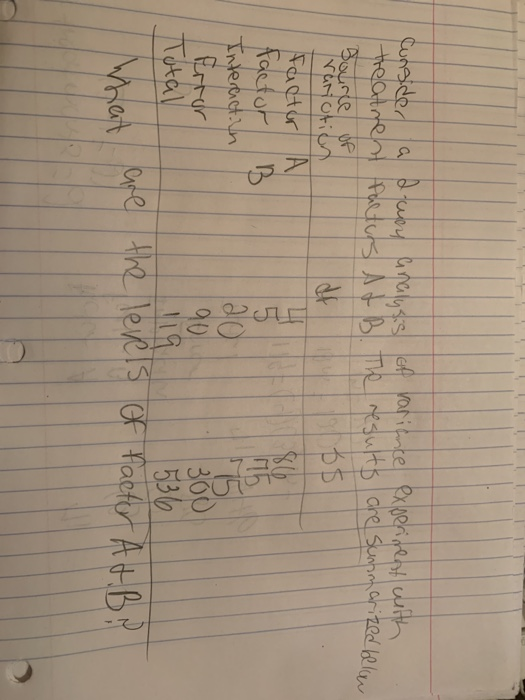 Consider a 2-way analysis of variance experiment with
treatment factors A & B. The results are summarized below
Source of
variation df SS
Factor A 4 86
Factor B 5 75
Interaction 20 15
Error 90 360
Total 119 536
What are the levels of factor A & B?